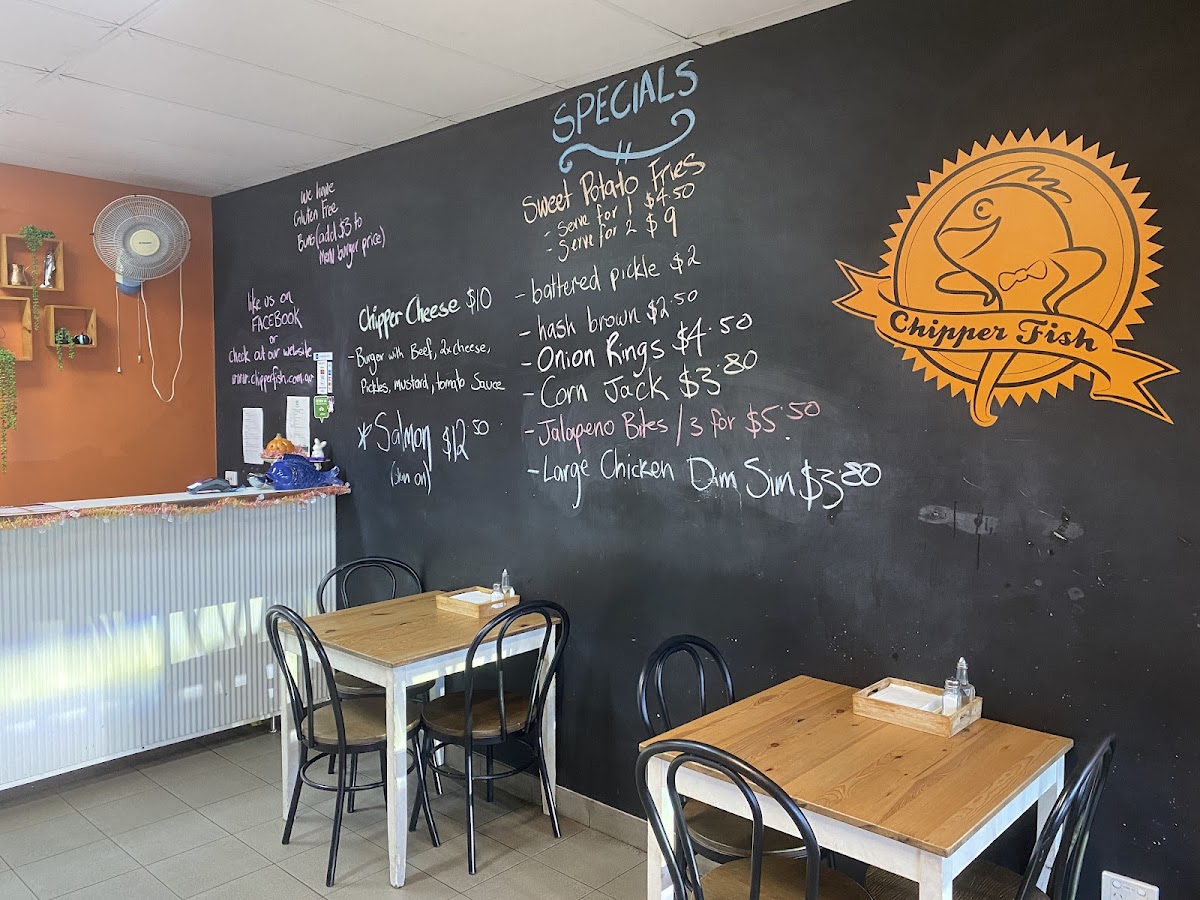 We have
Gluten Free
Buns (add $3 to
Menu burger price)
like us on
FACEBOOK
or
check out our website
www.chipperfish.com.au
Chipper Cheese $10
- Burger with Beef, 2x cheese,
Pickles, mustard, tomato Sauce
* Salmon $12.50
(skin on)
SPECIALS
Sweet Potato Fries
- Serve for 1 $4.50
- Serve for 2 $9
- battered pickle $2
- hash brown $2.50
- Onion Rings $4.50
- Corn Jack $3.80
- Jalapeno Bites / 3 for $5.50
- Large Chicken Dim Sim $3.80
Chipper Fish